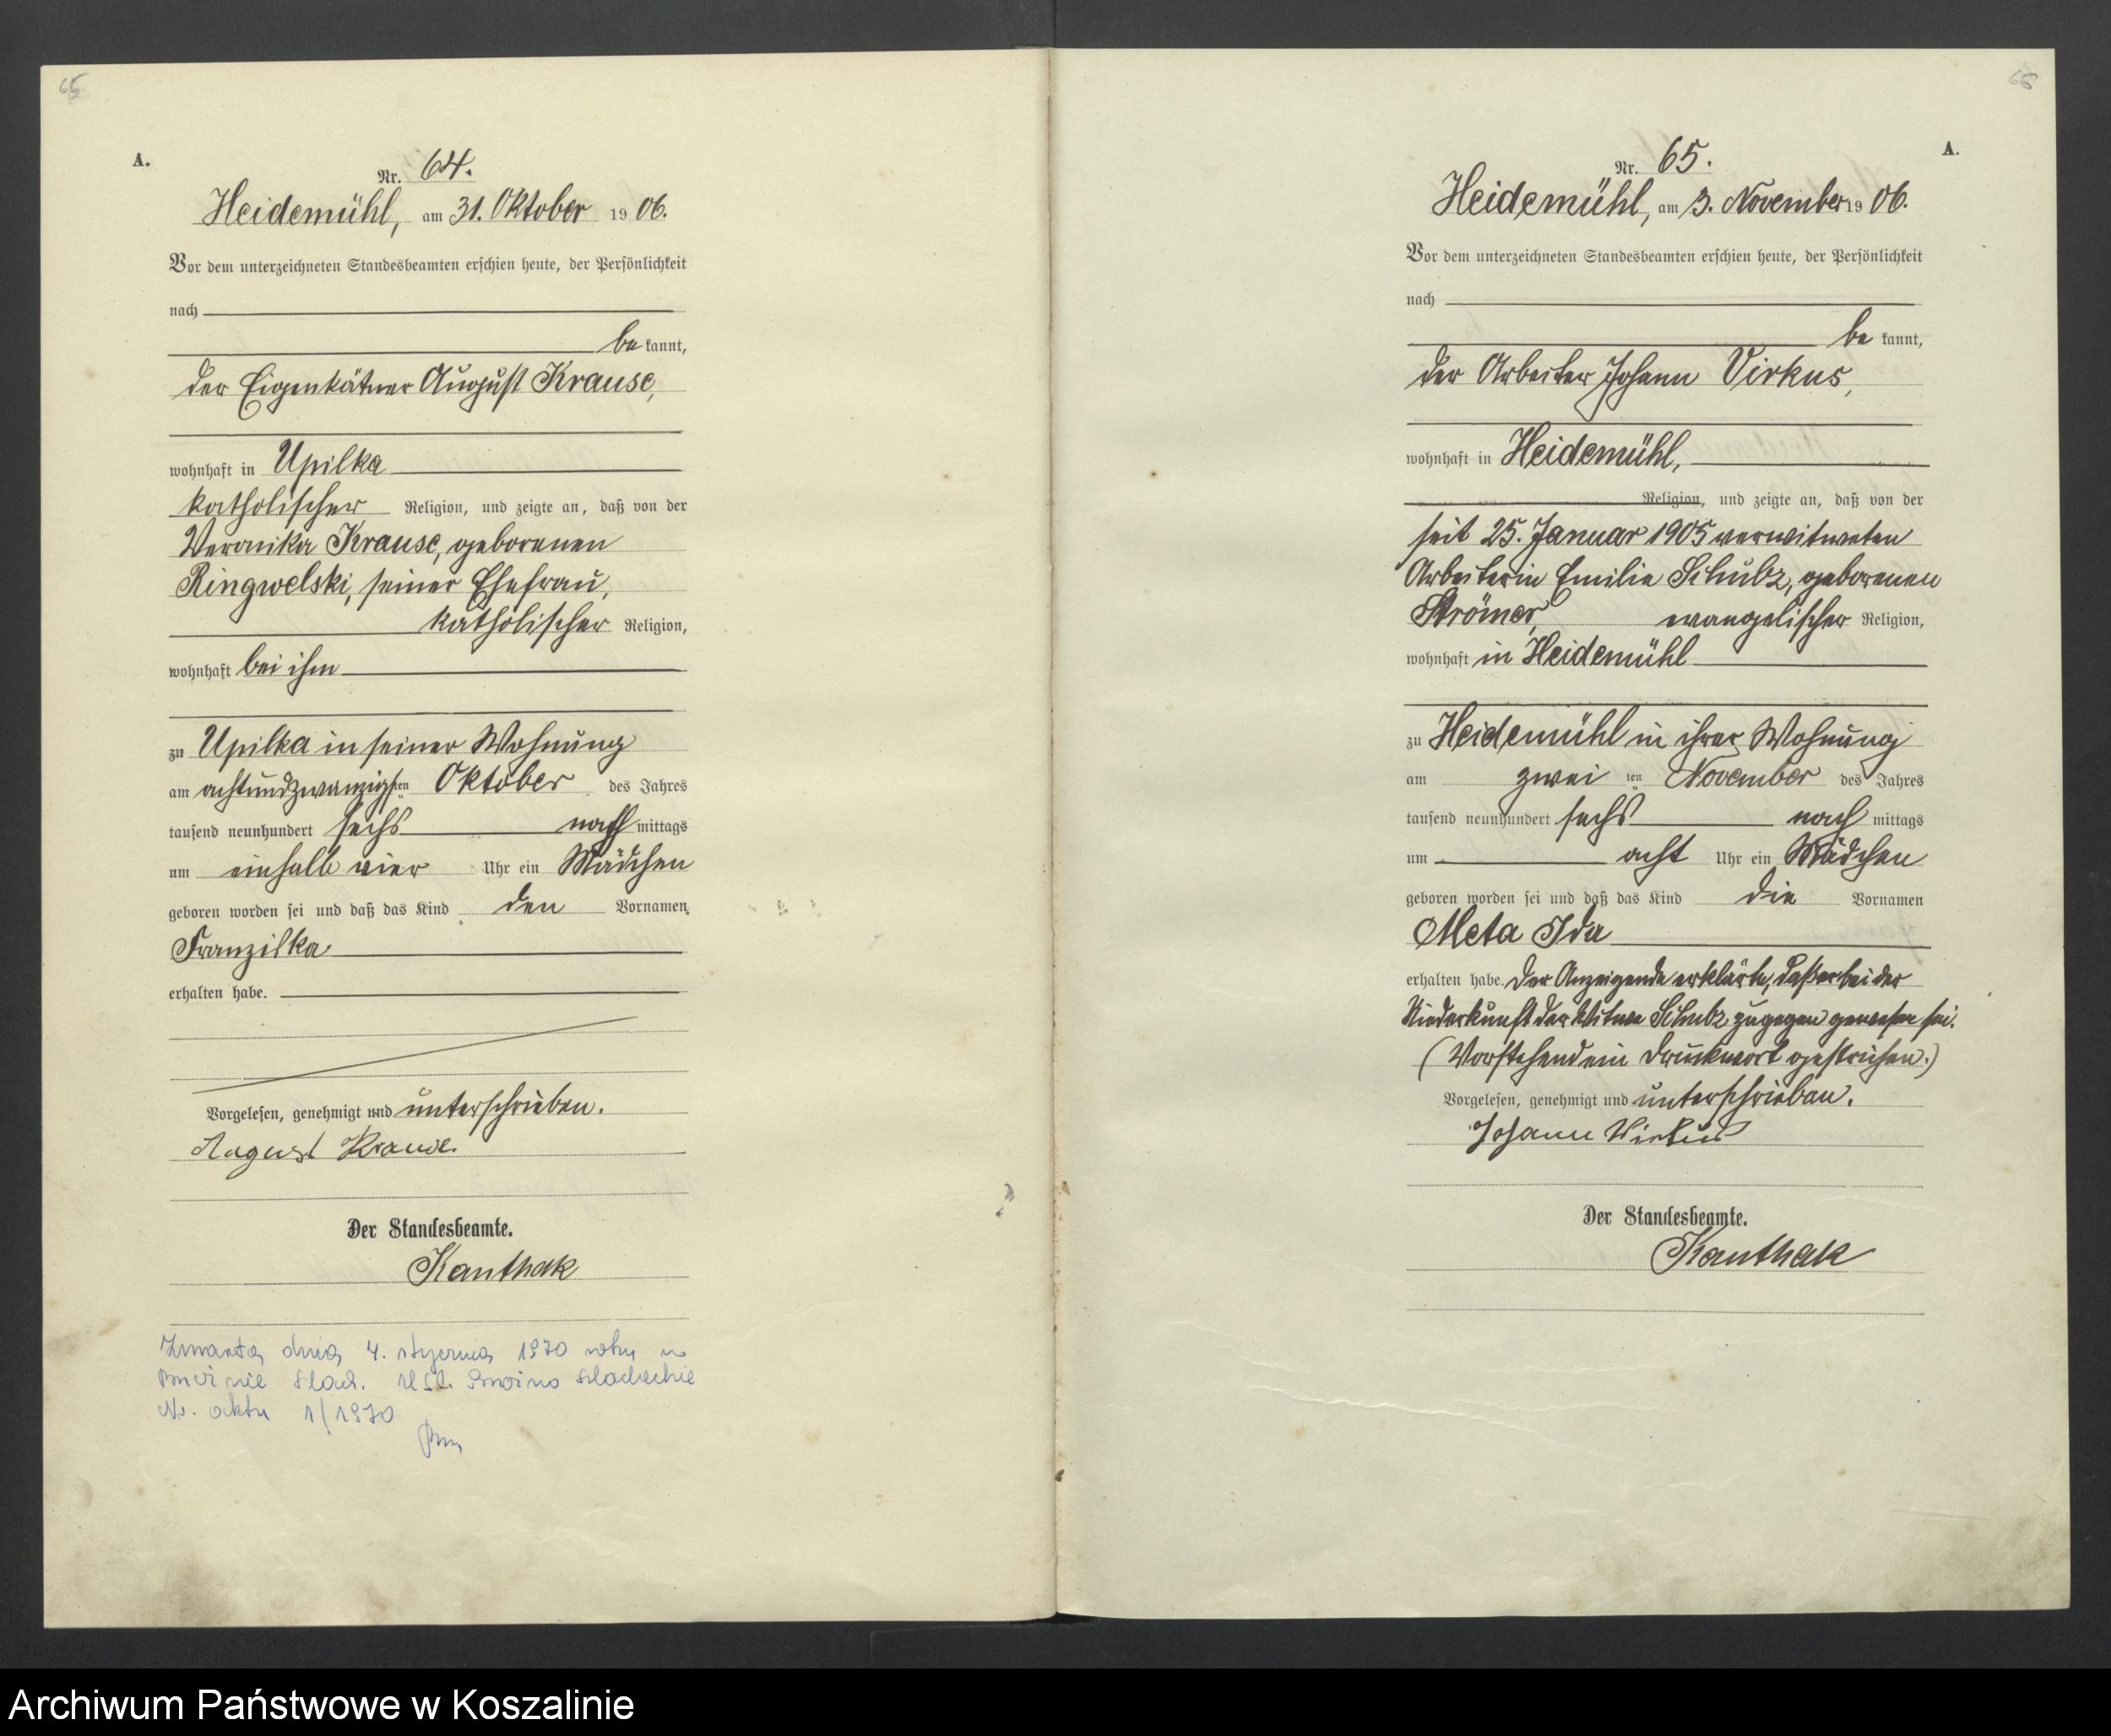 65
A.
Nr. 64.
Heidemühl, am 31. Oktober 1906.
Vor dem unterzeichneten Standesbeamten erschien heute, der Persönlichkeit
nach
be kannt,
der Eigenkätner August Krause,
wohnhaft in Upilka
katholischer Religion, und zeigte an, daß von der
Veronika Krause, geborenen
Ringwelski, seiner Ehefrau,
katholischer Religion,
wohnhaft bei ihm
zu Upilka in seiner Wohnung
am achtundzwanzigsten Oktober des Jahres
tausend neunhundert sechs nach mittags
um einhalb vier Uhr ein Mädchen
geboren worden sei und daß das Kind den Vornamen
Franziska
erhalten habe.
Vorgelesen, genehmigt und unterschrieben.
August Krause.
Der Standesbeamte.
Kanthak
Zmarła dnia 4. stycznia 1970 roku w
Borzyszkowach USC Brzeźno Szlacheckie
Nr. aktu 1/1970
66
A.
Nr. 65.
Heidemühl, am 3. November 1906.
Vor dem unterzeichneten Standesbeamten erschien heute, der Persönlichkeit
nach
be kannt,
der Arbeiter Johann Virkus,
wohnhaft in Heidemühl,
Religion, und zeigte an, daß von der
seit 25. Januar 1905 verwitweten
Arbeiterin Emilie Schulz, geborenen
Strömer, evangelischer Religion,
wohnhaft in Heidemühl
zu Heidemühl in ihrer Wohnung
am zwei ten November des Jahres
tausend neunhundert sechs nach mittags
um acht Uhr ein Mädchen
geboren worden sei und daß das Kind die Vornamen
Meta Ida
erhalten habe. Der Anzeigende erklärte, daß er bei der
Niederkunft der Witwe Schulz zugegen gewesen sei.
(Vorstehend ein Druckwort gestrichen.)
Vorgelesen, genehmigt und unterschrieben.
Johann Virkus
Der Standesbeamte.
Kanthak
Archiwum Państwowe w Koszalinie